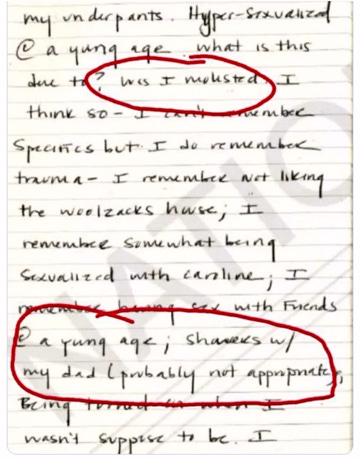 my underpants. Hyper-Sexualized
@ a yung age. what is this
due to? was I molsted. I
think so - I can't remember
Specifics but I do remember
trauma - I remember not liking
the woolzacks house; I
remember somewhat being
Sexualized with caroline; I
remember having sex with Friends
@ a yung age; showers w/
my dad (probably not appropriate).
Being turned on when I
wasn't suppose to be. I
NATIO